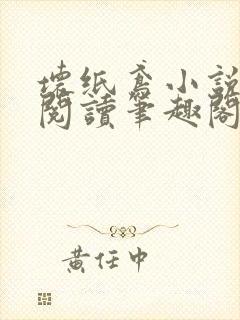 壞紙鳶小說
閱讀筆趣閣
黃任中